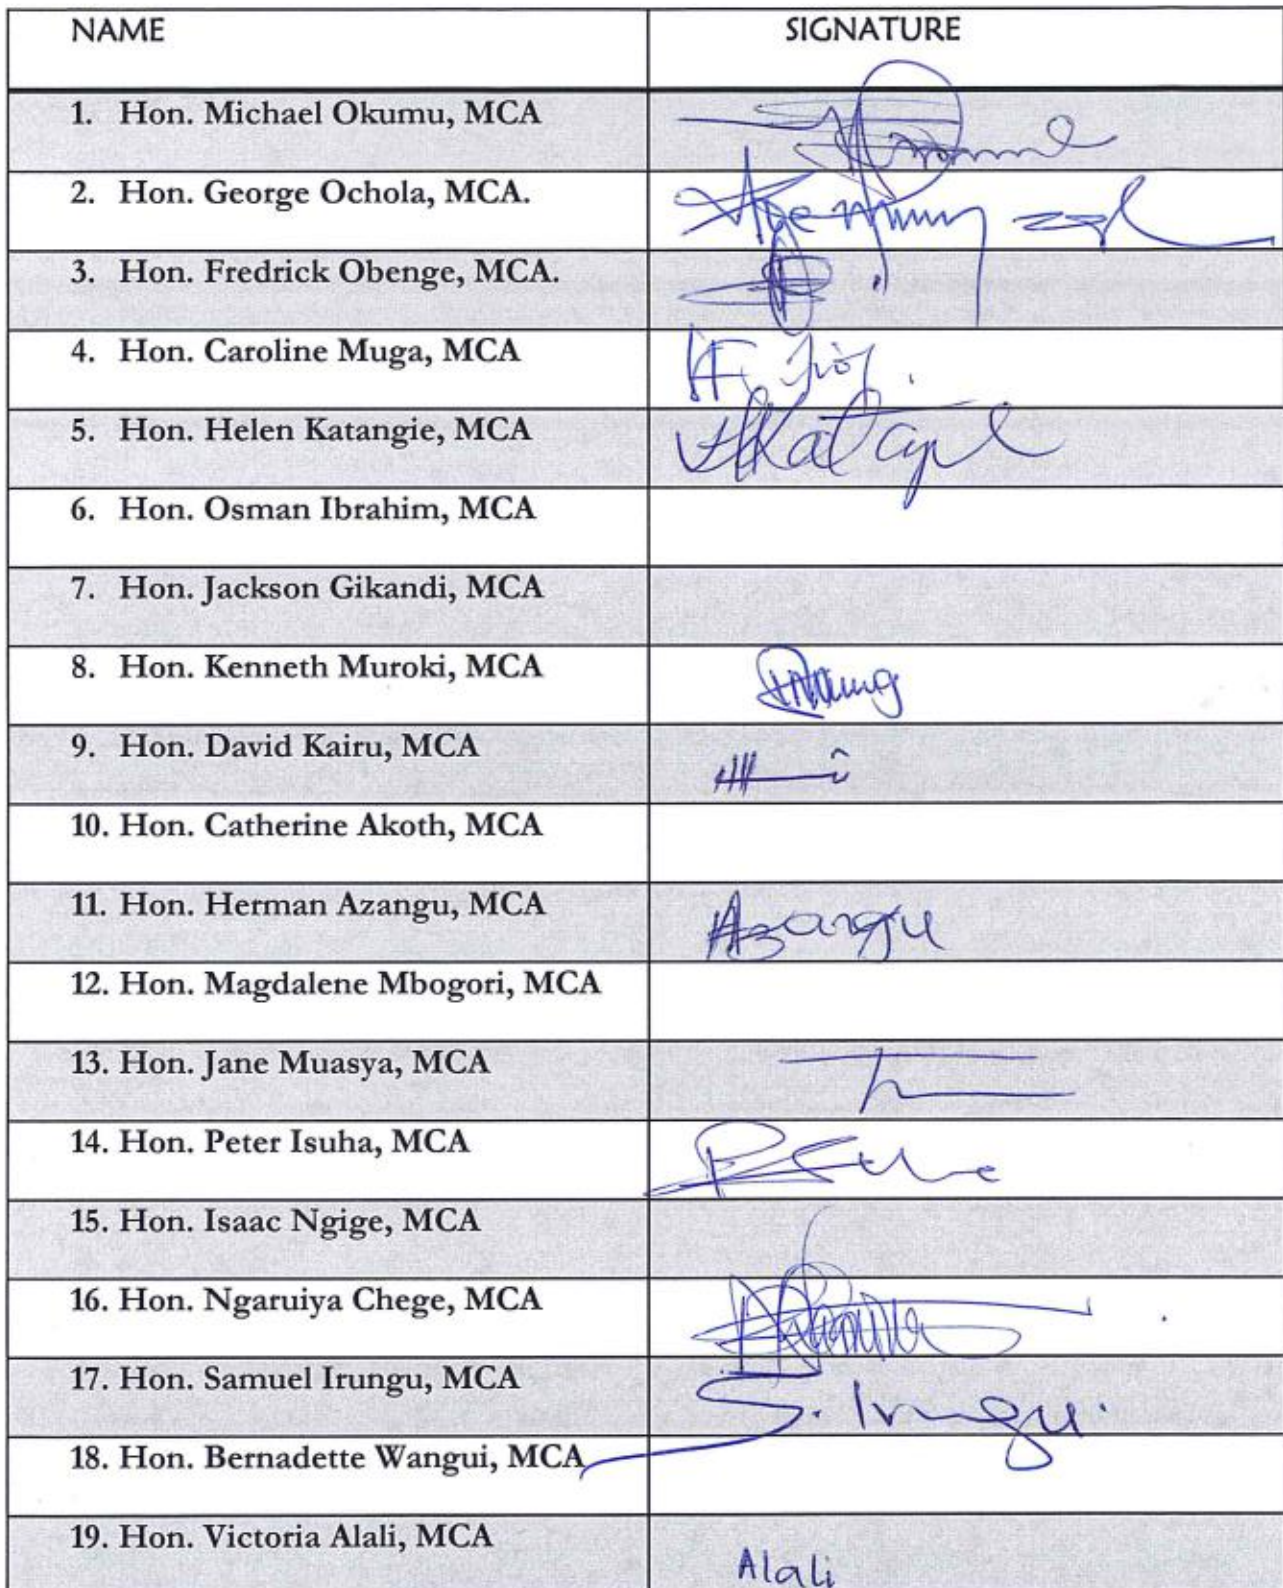 NAME SIGNATURE
1. Hon. Michael Okumu, MCA
2. Hon. George Ochola, MCA.
3. Hon. Fredrick Obenge, MCA.
4. Hon. Caroline Muga, MCA
5. Hon. Helen Katangie, MCA
6. Hon. Osman Ibrahim, MCA
7. Hon. Jackson Gikandi, MCA
8. Hon. Kenneth Muroki, MCA
9. Hon. David Kairu, MCA
10. Hon. Catherine Akoth, MCA
11. Hon. Herman Azangu, MCA Azangu
12. Hon. Magdalene Mbogori, MCA
13. Hon. Jane Muasya, MCA
14. Hon. Peter Isuha, MCA
15. Hon. Isaac Ngige, MCA
16. Hon. Ngaruiya Chege, MCA
17. Hon. Samuel Irungu, MCA S. Irungu.
18. Hon. Bernadette Wangui, MCA
19. Hon. Victoria Alali, MCA Alali